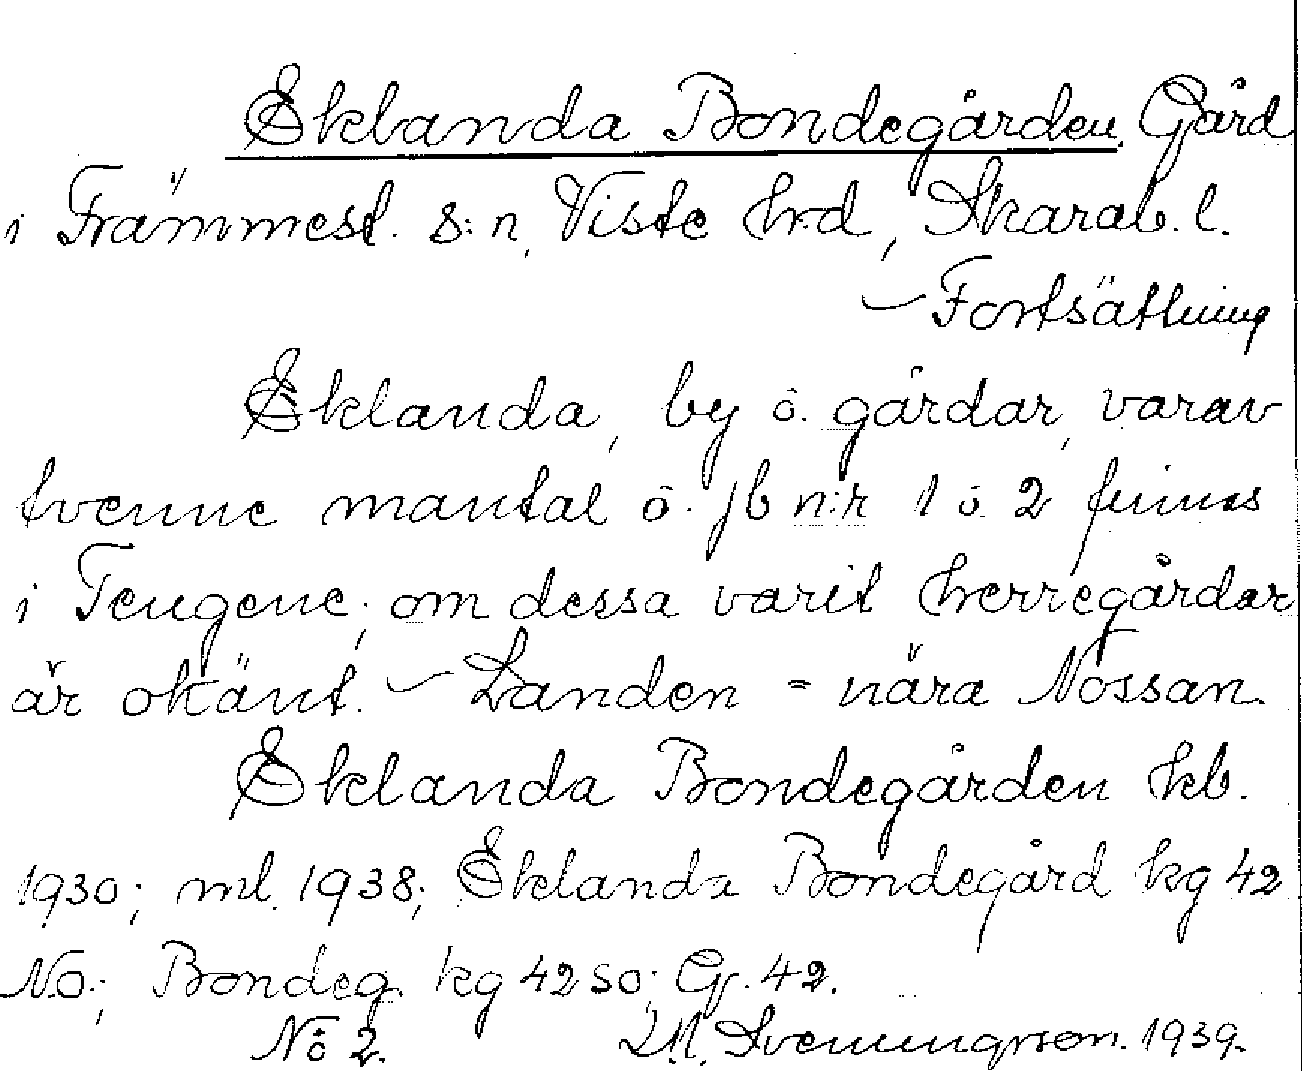 Eklanda Bondegården, Gård
i Främmest. s:n, Viste hrd, Skarab. l.
— Fortsättning
Eklanda, by o. gårdar, varav
tvenne mantal o. jb n:r 1 o. 2 finnas
i Tengene; om dessa varit herregårdar
är okänt. — Landen = nära Nossan.
Eklanda Bondegården kb.
1930; ml. 1938; Eklanda Bondegård kg 42
NO.; Bondeg. kg 42 SO; G. 42.
No 2. Sveningson. 1939.